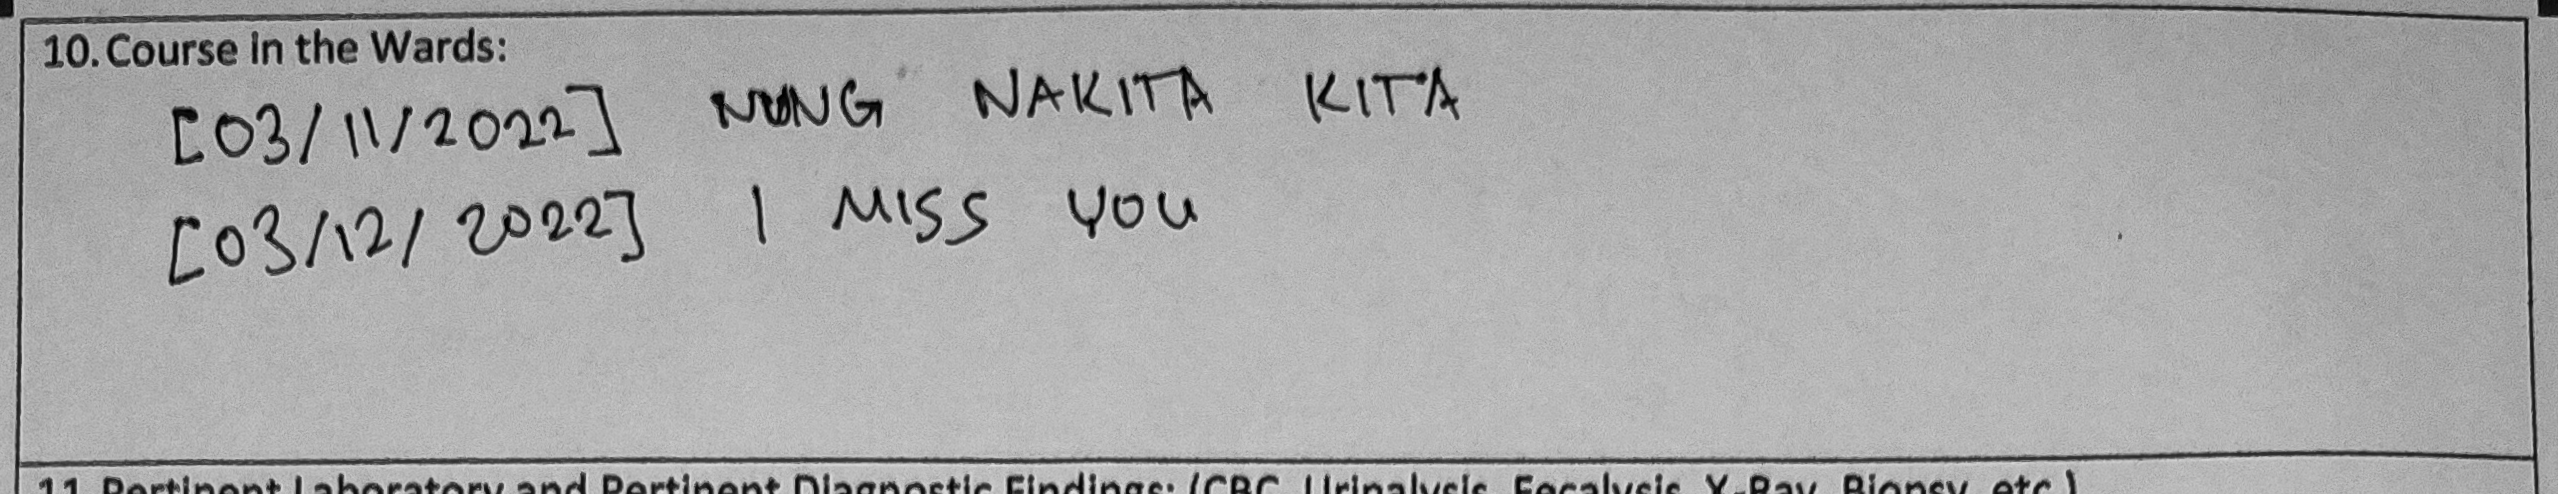 10. Course in the Wards:
[03/11/2022] NUNG NAKITA KITA
[03/12/2022] I MISS YOU
11. Pertinent Laboratory and Pertinent Diagnostic Findings: (CBC, Urinalysis, Fecalysis, X-Ray, Biopsy, etc.)